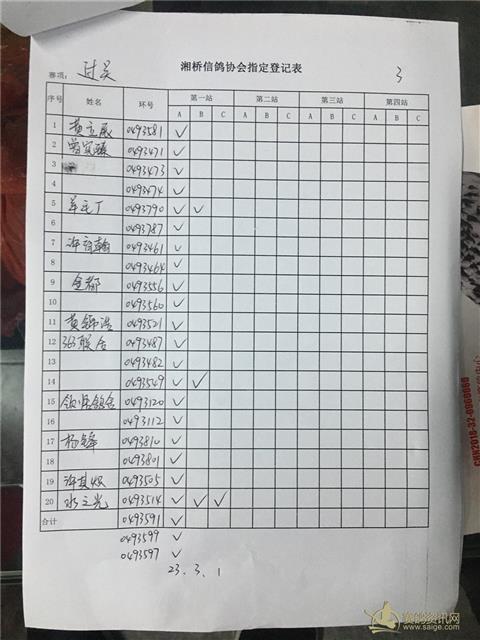 湘桥信鸽协会指定登记表
赛项: 过关 3
序号 姓名 环号 第一站 第二站 第三站 第四站
A B C A B C A B C A B C
1 黄立展 0493581 ✓
2 0493471 ✓
3 0493473 ✓
4 0493474 ✓
5 羊毛丁 0493790 ✓ ✓
6 0493787 ✓
7 许育翰 0493461 ✓
8 0493464 ✓
9 金都 0493556 ✓
10 0493560 ✓
11 黄锦浩 0493521 ✓
12 363联合 0493487 ✓
13 0493482 ✓
14 0493549 ✓ ✓
15 鸽舍 0493120 ✓
16 0493112 ✓
17 杨锋 0493810 ✓
18 0493801 ✓
19 许其 0493505 ✓
20 水之光 0493514 ✓ ✓ ✓
合计 0493591 ✓
0493599 ✓
0493597 ✓
23. 3. 1
CHN2018-32-0968060
赛鸽资讯网
www.saige.com